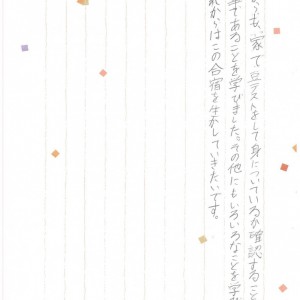 らも、家で豆テストをして身についているか確認するこ
事であることを学びました。その他にもいろいろなことを学
れからはこの合宿を生かしていきたいです。